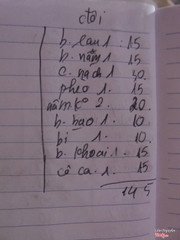 b. lau 1 : 15
b. nấm 1 15
c. nạch 1 30
pheo 1. 15
2. 20
b. bao 1. 10
bi 1. 10
b. khoai 1. 15
cô ca. 1. 15
145